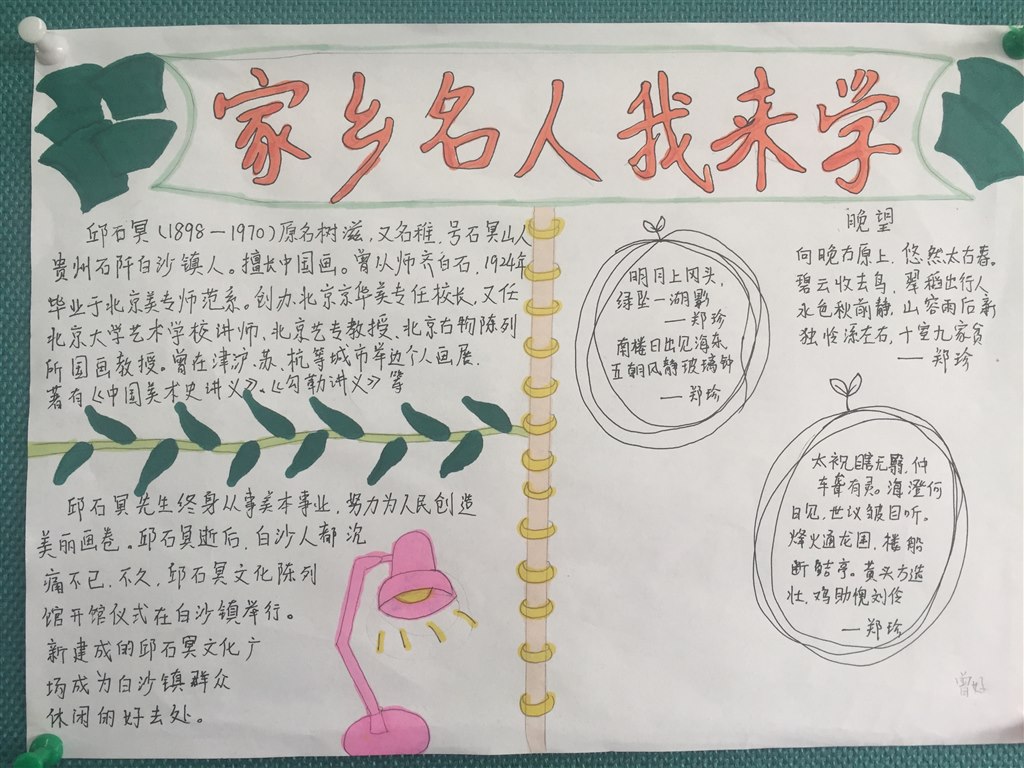 家乡名人我来学
邱石冥(1898－1970)原名树滋,又名稚,号石冥山人
贵州石阡白沙镇人。擅长中国画。曾从师齐白石,1924年
毕业于北京美专师范系。创办北京京华美专任校长,又任
北京大学艺术学校讲师、北京艺专教授、北京古物陈列
所国画教授。曾在津沪、苏、杭等城市举边个人画展.
著有《中国美术史讲义》、《勾勒讲义》等
邱石冥先生终身从事美本事业,努力为人民创造
美丽画卷。邱石冥逝后,白沙人都沉
痛不已,不久,邱石冥文化陈列
馆开馆仪式在白沙镇举行。
新建成的邱石冥文化广
场成为白沙镇群众
休闲的好去处。
明月上冈头,
绿坠一湖影
—郑珍
南楼日出见海东
五朝风静玻璃钟
—郑珍
晚望
向晚方原上,悠然太古春。
碧云收去鸟,翠稻出行人
水色秋前静,山容雨后新
独怜溪左右,十室九家贫
—郑珍
太祝瞎无翳,仲
车聋有灵。海澄何
日见,世议皱目听。
烽火通龙国,楼船
断鲒亭。黄头方造
壮,鸡助愧刘伶
—郑珍
曾好